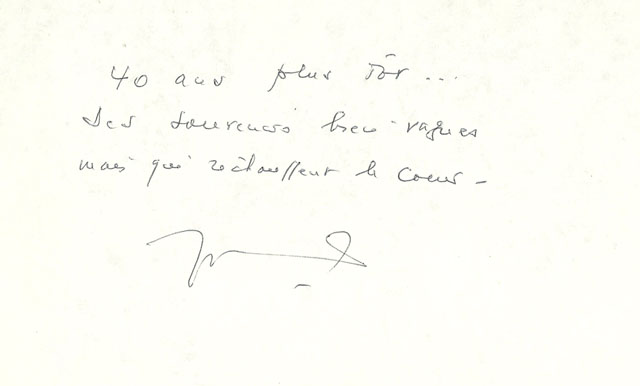 40 ans plus tôt...
des souvenirs bien vagues
mais qui réchauffent le coeur -